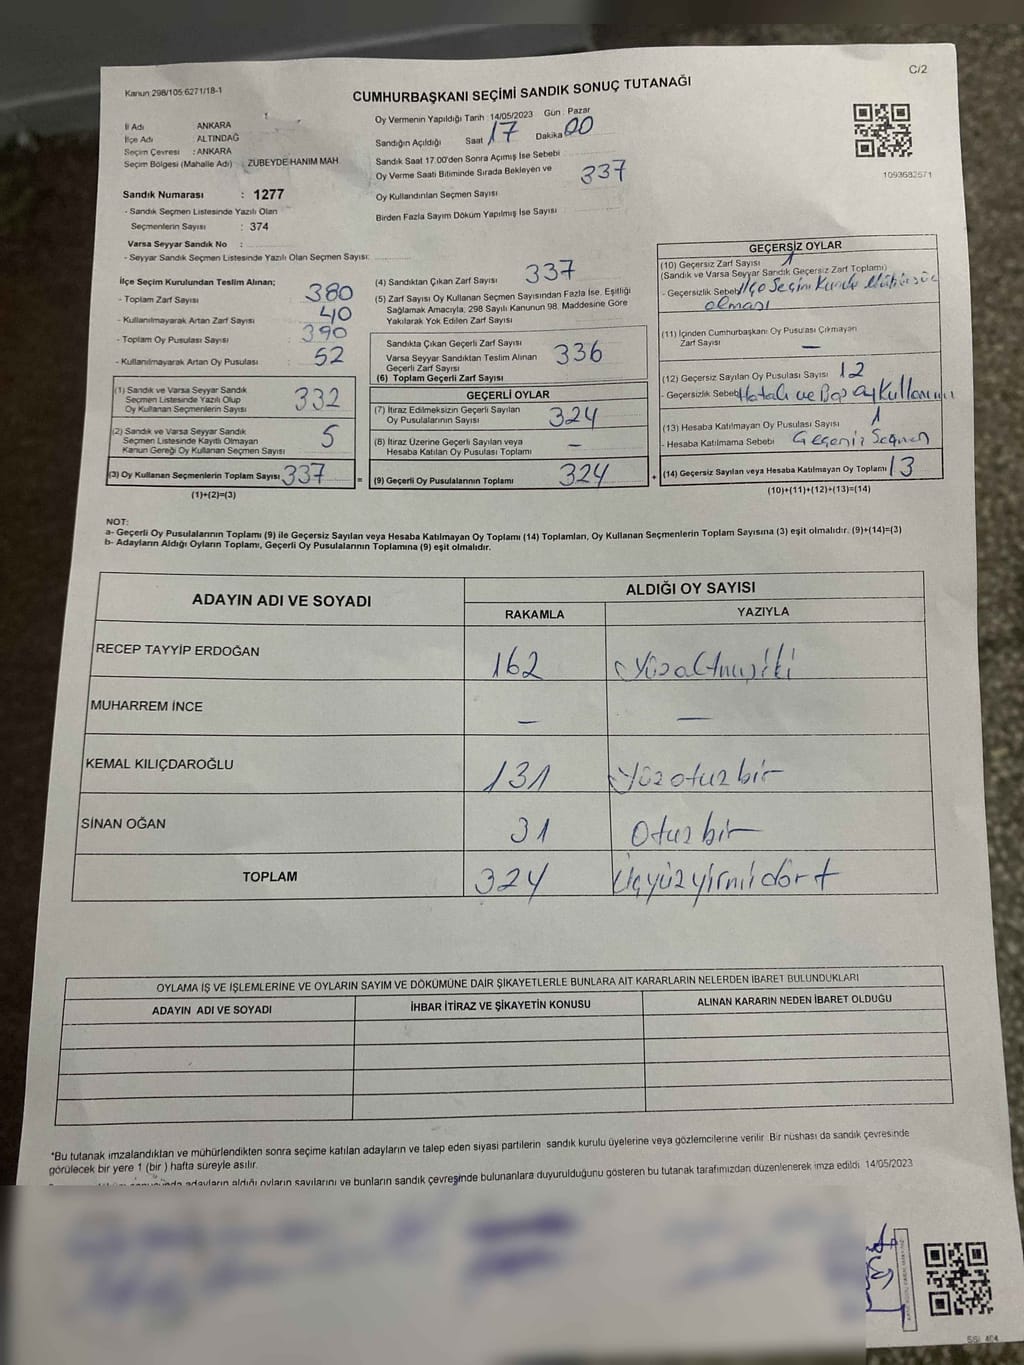 C/2
Kanun 298/105 6271/18-1
CUMHURBAŞKANI SEÇİMİ SANDIK SONUÇ TUTANAĞI
İl Adı ANKARA
İlçe Adı ALTINDAĞ
Seçim Çevresi : ANKARA
Seçim Bölgesi (Mahalle Adı) ZÜBEYDE HANIM MAH
Sandık Numarası : 1277
- Sandık Seçmen Listesinde Yazılı Olan
Seçmenlerin Sayısı : 374
Varsa Seyyar Sandık No :
- Seyyar Sandık Seçmen Listesinde Yazılı Olan Seçmen Sayısı:
Oy Vermenin Yapıldığı Tarih 14/05/2023 Gün Pazar
Sandığın Açıldığı Saat 17 Dakika 00
Sandık Saat 17.00'den Sonra Açımış İse Sebebi
Oy Verme Saati Bitiminde Sırada Bekleyen ve 337
Oy Kullandırılan Seçmen Sayısı
Birden Fazla Sayım Döküm Yapılmış İse Sayısı
1093682571
İlçe Seçim Kurulundan Teslim Alınan;
- Toplam Zarf Sayısı 380
- Kullanılmayarak Artan Zarf Sayısı 40
- Toplam Oy Pusulası Sayısı 390
- Kullanılmayarak Artan Oy Pusulası 52
(1) Sandık ve Varsa Seyyar Sandık
Seçmen Listesinde Yazılı Olup 332
Oy Kullanan Seçmenlerin Sayısı
(2) Sandık ve Varsa Seyyar Sandık
Seçmen Listesinde Kayıtlı Olmayan 5
Kanun Gereği Oy Kullanan Seçmen Sayısı
(3) Oy Kullanan Seçmenlerin Toplam Sayısı 337 =
(1)+(2)=(3)
(4) Sandıktan Çıkan Zarf Sayısı 337
(5) Zarf Sayısı Oy Kullanan Seçmen Sayısından Fazla İse, Eşitliği
Sağlamak Amacıyla, 298 Sayılı Kanunun 98. Maddesine Göre
Yakılarak Yok Edilen Zarf Sayısı
Sandıkta Çıkan Geçerli Zarf Sayısı
Varsa Seyyar Sandıktan Teslim Alınan 336
Geçerli Zarf Sayısı
(6) Toplam Geçerli Zarf Sayısı
GEÇERLİ OYLAR
(7) İtiraz Edilmeksizin Geçerli Sayılan 324
Oy Pusulalarının Sayısı
(8) İtiraz Üzerine Geçerli Sayılan veya –
Hesaba Katılan Oy Pusulası Toplamı
(9) Geçerli Oy Pusulalarının Toplamı 324 +
GEÇERSİZ OYLAR
(10) Geçersiz Zarf Sayısı 1
(Sandık ve Varsa Seyyar Sandık Geçersiz Zarf Toplamı)
- Geçersizlik Sebebi İlçe Seçim Kurulu Mühürsüz
olması
(11) İçinden Cumhurbaşkanı Oy Pusulası Çıkmayan
Zarf Sayısı –
(12) Geçersiz Sayılan Oy Pusulası Sayısı 12
- Geçersizlik Sebebi Hatalı ve Boş oy Kullanımı
(13) Hesaba Katılmayan Oy Pusulası Sayısı 1
- Hesaba Katılmama Sebebi
(14) Geçersiz Sayılan veya Hesaba Katılmayan Oy Toplamı 13
(10)+(11)+(12)+(13)=(14)
NOT:
a- Geçerli Oy Pusulalarının Toplamı (9) ile Geçersiz Sayılan veya Hesaba Katılmayan Oy Toplamı (14) Toplamları, Oy Kullanan Seçmenlerin Toplam Sayısına (3) eşit olmalıdır. (9)+(14)=(3)
b- Adayların Aldığı Oyların Toplamı, Geçerli Oy Pusulalarının Toplamına (9) eşit olmalıdır.
ADAYIN ADI VE SOYADI ALDIĞI OY SAYISI
RAKAMLA YAZIYLA
RECEP TAYYİP ERDOĞAN 162 Yüzaltmışiki
MUHARREM İNCE – –
KEMAL KILIÇDAROĞLU 131 Yüzotuzbir
SİNAN OĞAN 31 Otuzbir
TOPLAM 324 Üçyüzyirmidört
OYLAMA İŞ VE İŞLEMLERİNE VE OYLARIN SAYIM VE DÖKÜMÜNE DAİR ŞİKAYETLERLE BUNLARA AİT KARARLARIN NELERDEN İBARET BULUNDUKLARI
ADAYIN ADI VE SOYADI İHBAR İTİRAZ VE ŞİKAYETİN KONUSU ALINAN KARARIN NEDEN İBARET OLDUĞU
*Bu tutanak imzalandıktan ve mühürlendikten sonra seçime katılan adayların ve talep eden siyasi partilerin sandık kurulu üyelerine veya gözlemcilerine verilir. Bir nüshası da sandık çevresinde
görülecek bir yere 1 (bir ) hafta süreyle asılır.
adayların aldığı oyların sayılarını ve bunların sandık çevresinde bulunanlara duyurulduğunu gösteren bu tutanak tarafımızdan düzenlenerek imza edildi. 14/05/2023